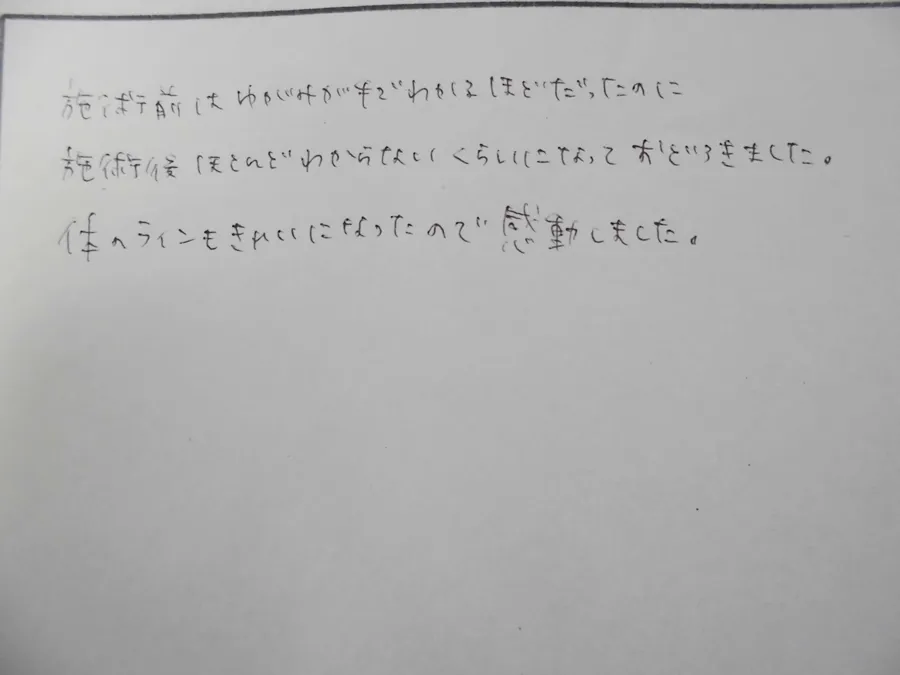 施術前はゆがみが手でわかるほどだったのに
施術後ほとんどわからないくらいになっておどろきました。
体のラインもきれいになったので感動しました。